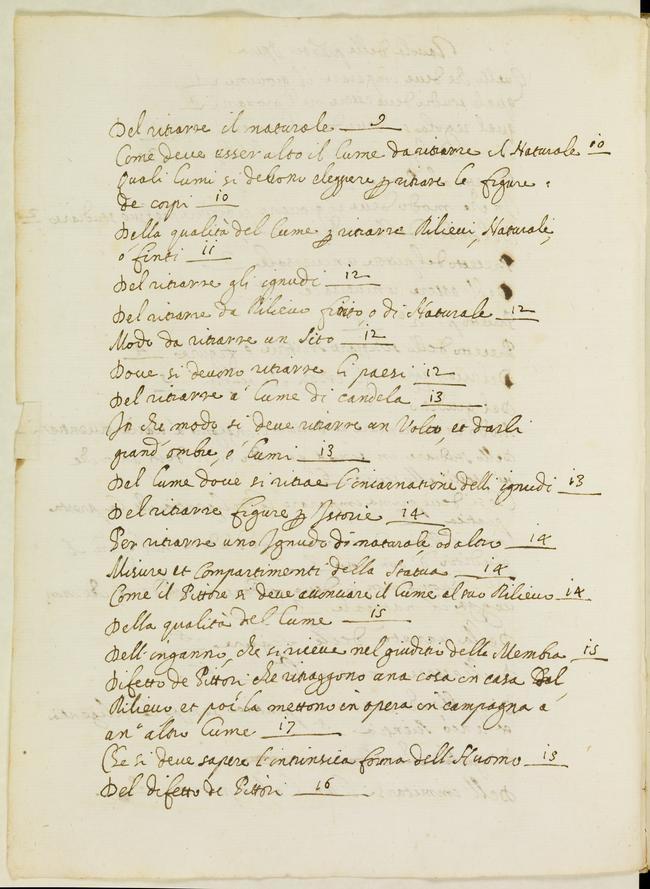 Del ritrarre il naturale 9
Come deve esser alto il lume da ritrarre il Naturale 10
Quali lumi si devono eleggere ꝑ ritrare le figure
de corpi 10
Della qualità del lume ꝑ ritrarre Rilievi, Naturale,
ò finti 11
Del ritrarre gli ignudi 12
Del ritrarre da Rilievo finto, o di Naturale 12
Modo da ritrarre un Sito 12
Dove si devono ritrarre li paesi 12
Del ritrarre a' lume di candela 13
In che modo si deve ritrarre un Volto, et darli
grand'ombre, e' lumi 13
Del lume dove si ritrae l'incarnatione delli ignudi 13
Del ritrarre figure ꝑ Istorie 14
Per ritrarre uno Ignudo di naturale, od altro 14
Misure et compartimenti della Statua 14
Come il Pittore si deve acconciare il lume al suo Rilievo 14
Della qualità del lume 15
Dell'inganno, che si riceve nel giuditio delle Membra 15
Difetto de Pittori che ritraggono una cosa in casa Dal
Rilievo et poi la mettono in opera in campagna a'
un'altro lume 17
Che si deve sapere l'intrinsica forma dell'Huomo 15
Del difetto de Pittori 16